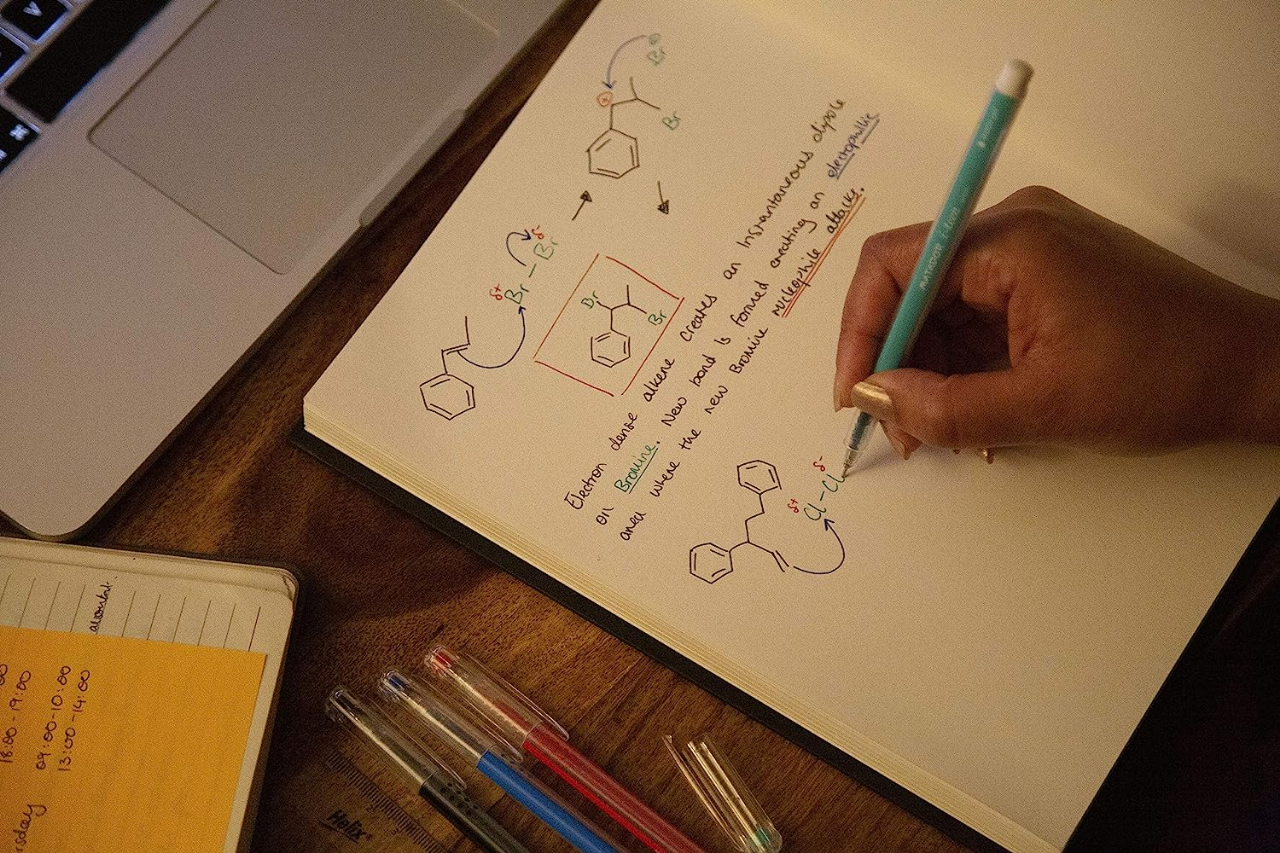 Br
Br
δ+ Br - Br δ-
Br
Br
Electron dense alkene creates an Instantaneous dipole
on Bromine. New bond is formed creating an electrophillic
area where the new Bromine nucleophile attacks.
δ+ Cl-Cl δ-
MATADOR
18:00-19:00
09:00-10:00
13:00-14:00
rsday
Helix
V
⌘